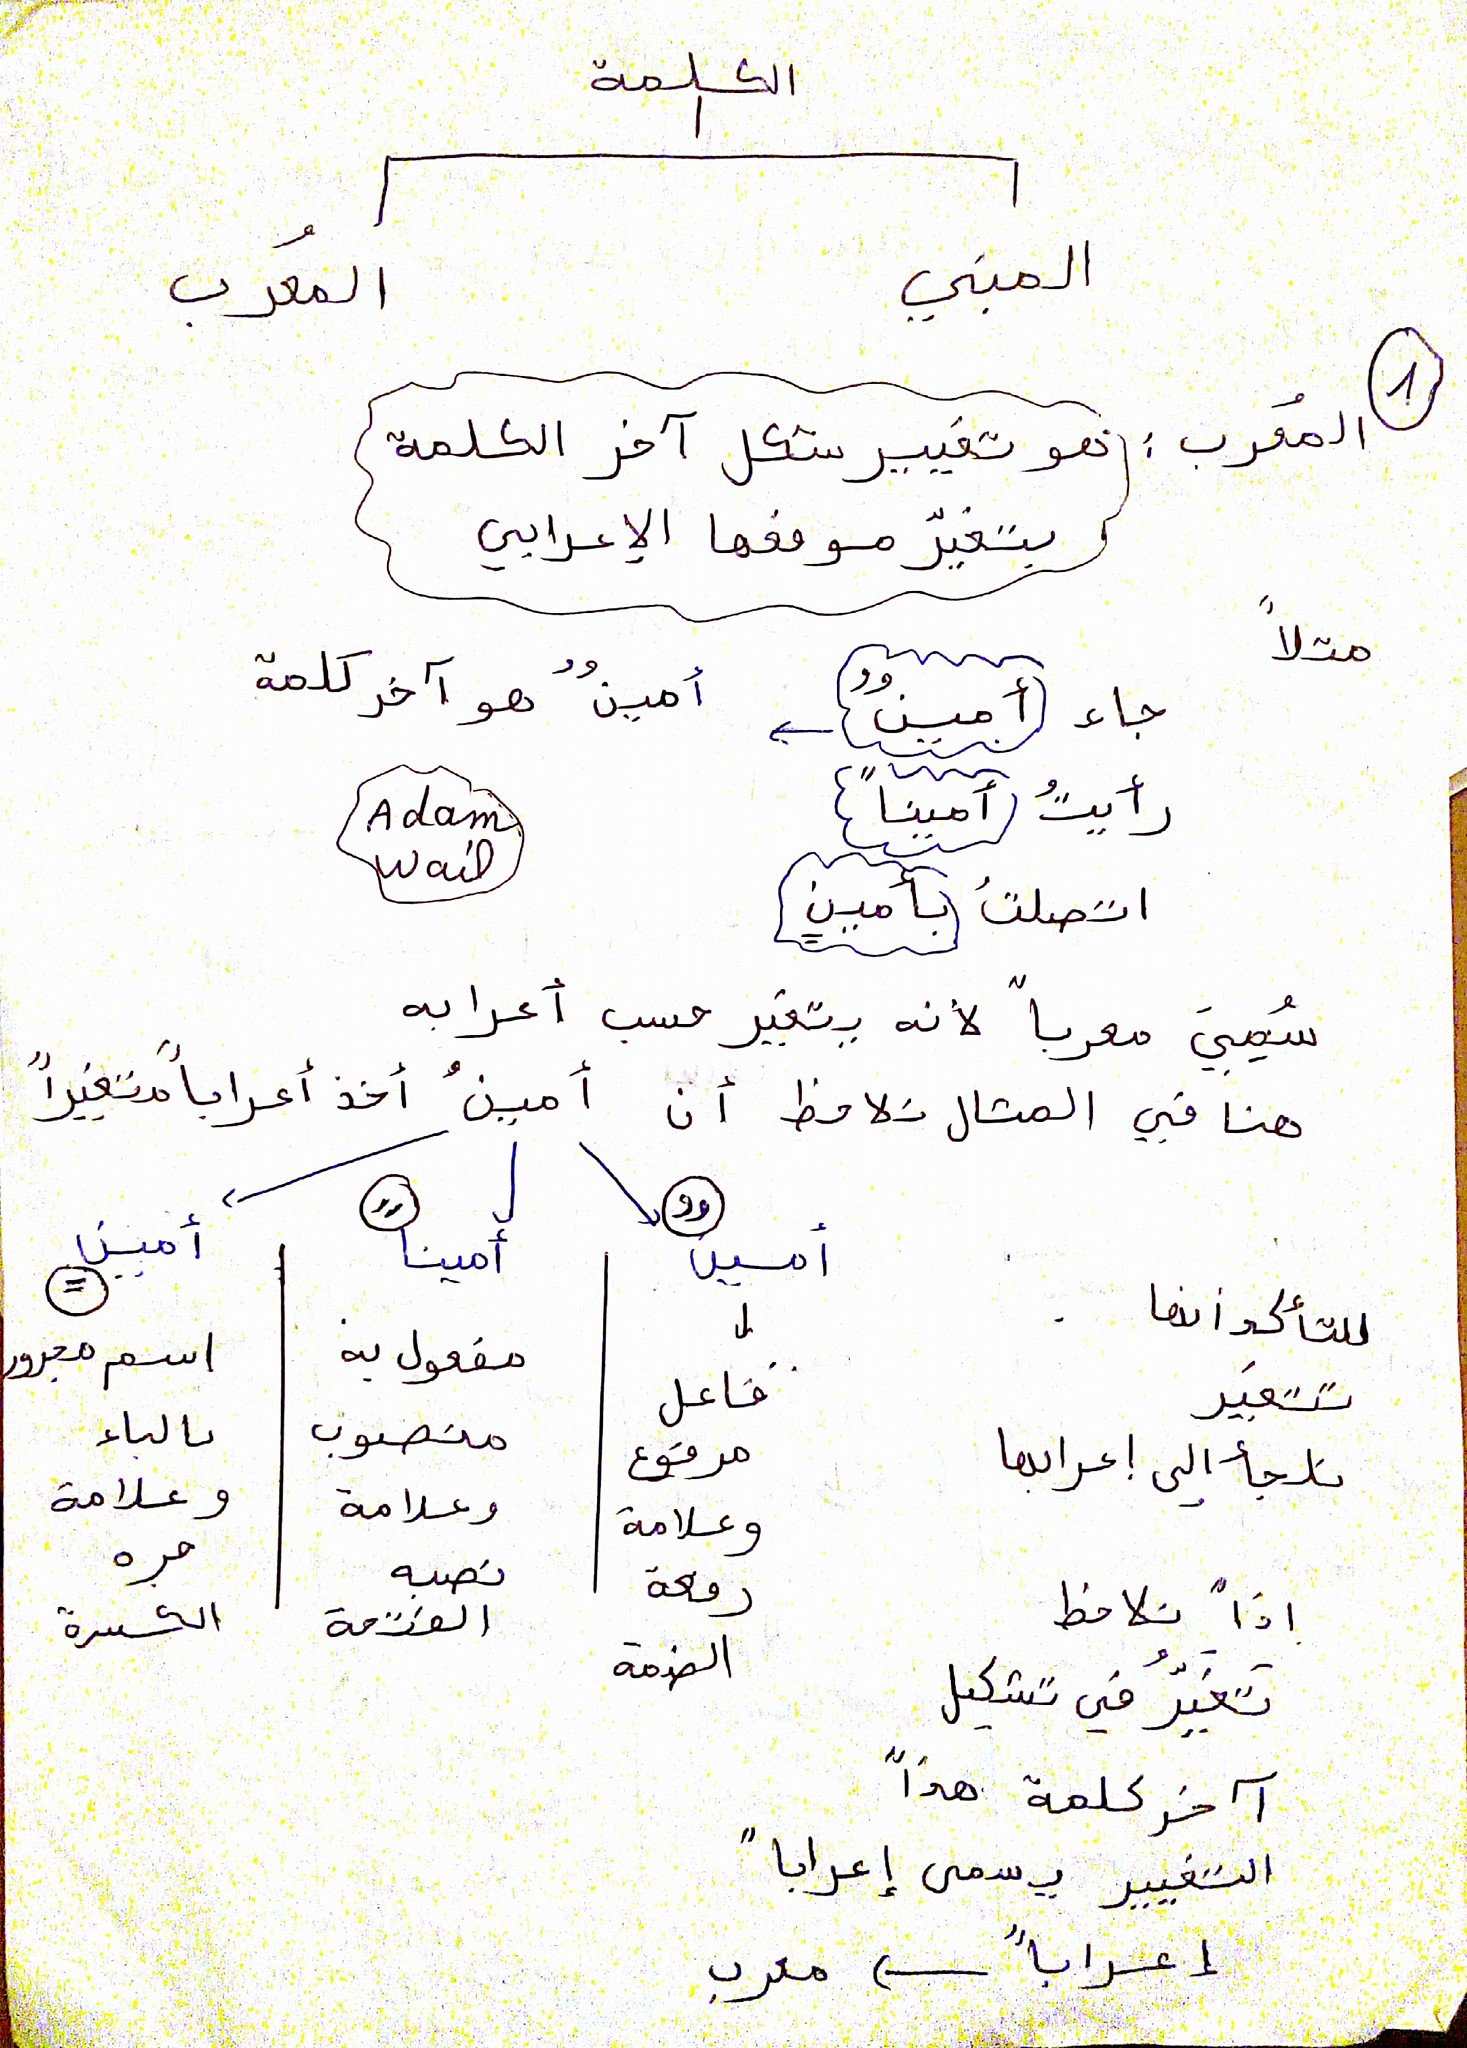 الكلمة
المبني
المُعرَب
1
المُعرب : هو تغيير شكل آخر الكلمة
بتغيّر موقعها الإعرابي
مثلاً
جاء أمينٌ ← أمينٌ هو آخر كلمة
رأيتُ أميناً
Adam
Wail
اتصلتُ بأمينٍ
سُمِيَ معرباً لأنه يتغير حسب أعرابه
هنا في المثال نلاحظ أن أمينٌ أخذ أعراباً متغيراً
أمينٌ
فاعل
مرفوع
وعلامة
رفعة
الضمة
أميناً
مفعول به
منصوب
وعلامة
نصبه
الفتحة
أمينٍ
اسم مجرور
بالباء
وعلامة
جره
الكسرة
للتأكد انها
تتغير
نلجأ إلى إعرابها
اذاً نلاحظ
تَغَيّرُ في تشكيل
آخر كلمة هذاً
التغيير يسمى إعراباً
إعراباً ← معرب